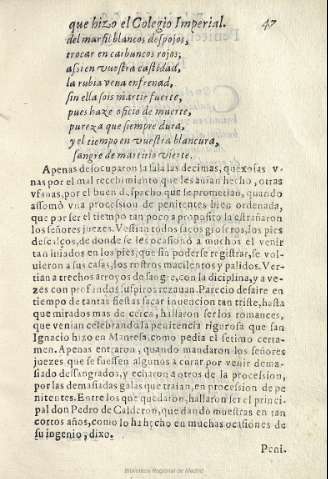 que hizo el Colegio Imperial. 47
del marfil blancos despojos,
trocar en carbuncos rojos;
assi en vuestra castidad,
la rubia vena enfrenad,
sin ella sois martir fuerte,
pues haze oficio de muerte,
pureza que siempre dura,
y el tiempo en vuestra blancura,
sangre de martirio vierte.
Apenas desocuparon la sala las decimas, quexosas v-
nas por el mal recebimiento que les auian hecho, otras
vfanas, por el buen despacho que se prometian, quando
assomò vna procession de penitentes bien ordenada,
que por ser el tiempo tan poco a proposito la estrañaron
los señores juezes. Vestian todos sacos groseros, los pies
descalços, de donde se les ocasionò a muchos el venir
tan iniados en los pies, que sin poderse registrar, se vol-
uieron a sus casas, los rostros macilentos y palidos. Ver-
tian a trechos arroyos de sangre, con la diciplina, y a ve-
zes con profundos suspiros rezauan. Parecio desaire en
tiempo de tantas fiestas sacar inuencion tan triste, hasta
que mirados mas de cerca, hallaron ser los romances,
que venian celebrando la penitencia rigurosa que san
Ignacio hizo en Manresa, como pedia el setimo certa-
men. Apenas entraron, quando mandaron los señores
juezes que se fuessen algunos a curar, por venir dema-
siado desangrados, y echaron a otros de la procession,
por las demasiadas galas que traian, en procession de pe-
nitentes. Entre los que quedaron, hallaron ser el princi-
pal don Pedro de Calderon, que dando muestras en tan
cortos años, como lo ha hecho en muchas ocasiones de
su ingenio, dixo.
Peni.
Biblioteca Regional de Madrid